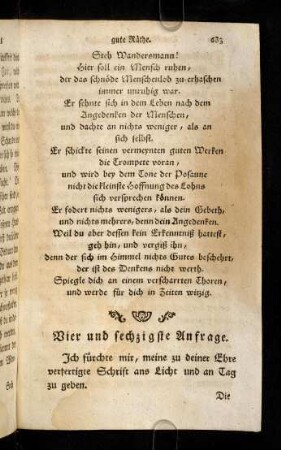 gute Räthe. 603
Steh Wandersmann!
Hier soll ein Mensch ruhen,
der das schnöde Menschenlob zu erhaschen
immer unruhig war.
Er sehnte sich in dem Leben nach dem
Angedenken der Menschen,
und dachte an nichts weniger, als an
sich selbst.
Er schickte seinen vermeynten guten Werken
die Trompete voran,
und wird bey dem Tone der Posaune
nicht die kleinste Hoffnung des Lohns
sich versprechen können.
Er fodert nichts wenigers, als dein Gebeth,
und nichts mehrers, denn dein Angedenken.
Weil du aber dessen kein Erkenntniß hattest,
geh hin, und vergiß ihn,
denn der sich im Himmel nichts Gutes beschehrt,
der ist des Denkens nicht werth.
Spiegle dich an einem verscharrten Thoren,
und werde für dich in Zeiten witzig.
Vier und sechzigste Anfrage.
Ich fürchte mir, meine zu deiner Ehre
verfertigte Schrift ans Licht und an Tag
zu geben.
Die